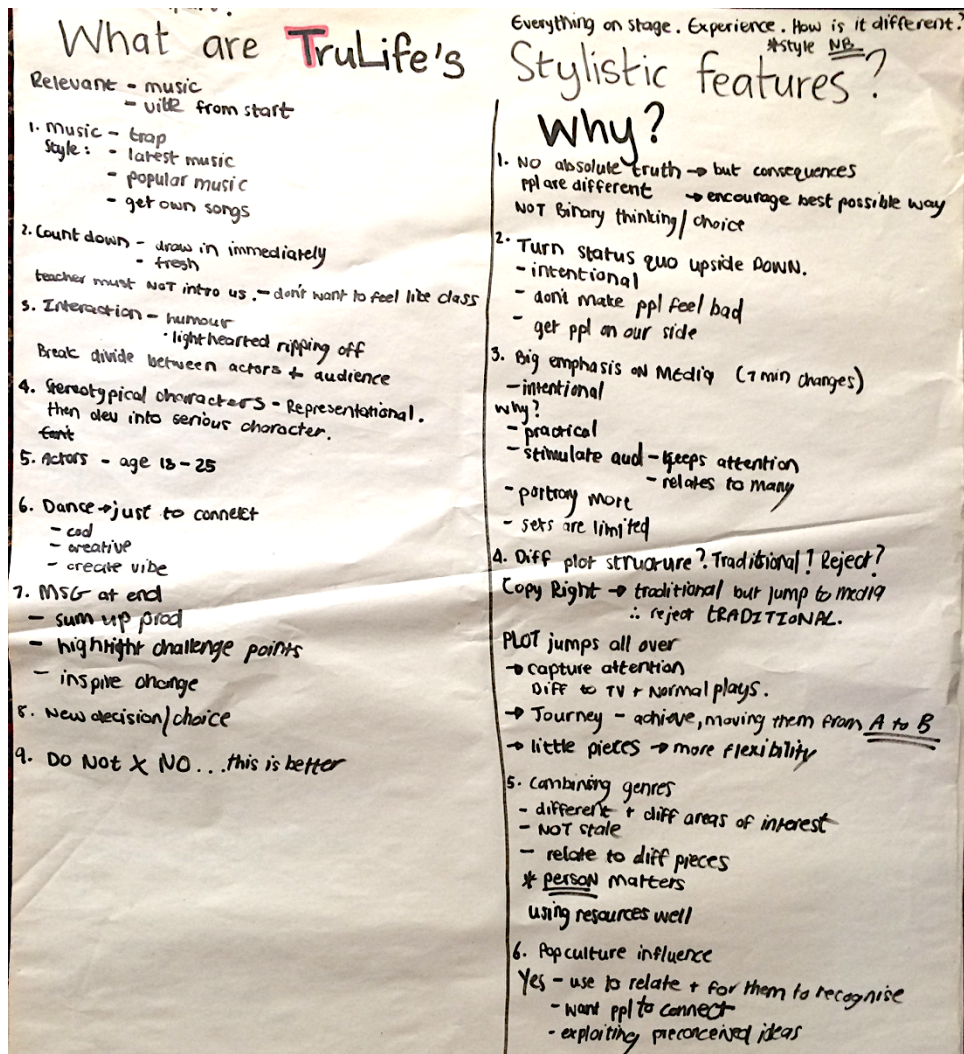 Everything on stage. Experience. How is it different?
*Style NB
What are TruLife's Stylistic features?
Relevant - music
- vibe from start
1. Music - trap
Style: - latest music
- popular music
- get own songs
2. Count down - draw in immediately
- fresh
teacher must NOT intro us. - don't want to feel like class
3. Interaction - humour
· lighthearted ripping off
Break divide between actors + audience
4. Stereotypical characters - Representational.
then dev into serious character.
5. Actors - age 18-25
6. Dance → just to connect
- cool
- creative
- create vibe
7. MSG at end
- sum up prod
- highlight challenge points
- inspire change
8. New decision/choice
9. DO NOT X NO... this is better
Why?
1. NO absolute truth → but consequences
ppl are different → encourage best possible way
NOT Binary thinking/choice
2. Turn status quo upside DOWN.
- intentional
- don't make ppl feel bad
- get ppl on our side
3. Big emphasis on Media (7 min changes)
- intentional
why?
- practical
- stimulate aud - keeps attention
- relates to many
- portray more
- sets are limited
4. Diff plot structure? Traditional? Reject?
Copy Right → traditional but jump to media
∴ reject TRADITIONAL.
PLOT jumps all over
→ capture attention
Diff to TV + Normal plays.
→ Journey - achieve, moving them from A to B
→ little pieces → more flexibility
5. Combining genres
- different + diff areas of interest
- NOT stale
- relate to diff pieces
* person matters
using resources well
6. Pop culture influence
Yes - use to relate + for them to recognise
- want ppl to connect
- exploiting preconceived ideas